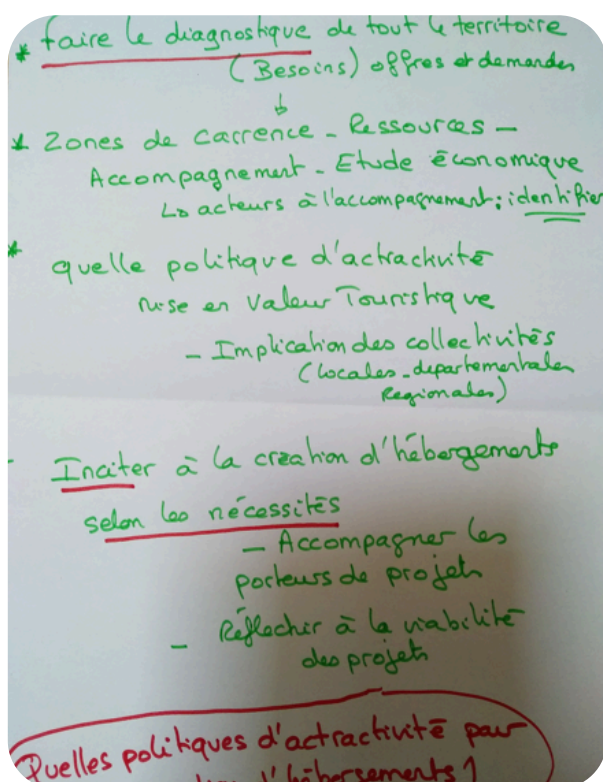 * faire le diagnostique de tout le territoire
(Besoins) offres et demandes
↓
* Zones de carrence - Ressources -
Accompagnement - Etude économique
↳ acteurs à l'accompagnement : identifier
* quelle politique d'actractivité
mise en valeur Touristique
- Implication des collectivités
(locales - departementales
Regionales)
- Inciter à la création d'hébergements
selon les nécessités
- Accompagner les
porteurs de projets
- Réflechir à la viabilité
des projets
Quelles politiques d'actractivité pour
d'hébergements ?